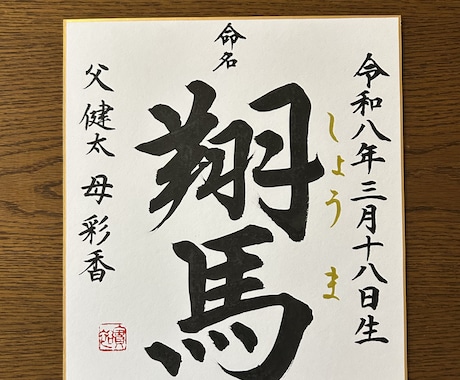 命名
令和八年三月十八日生
しょうま
翔馬
父 健太 母 彩香